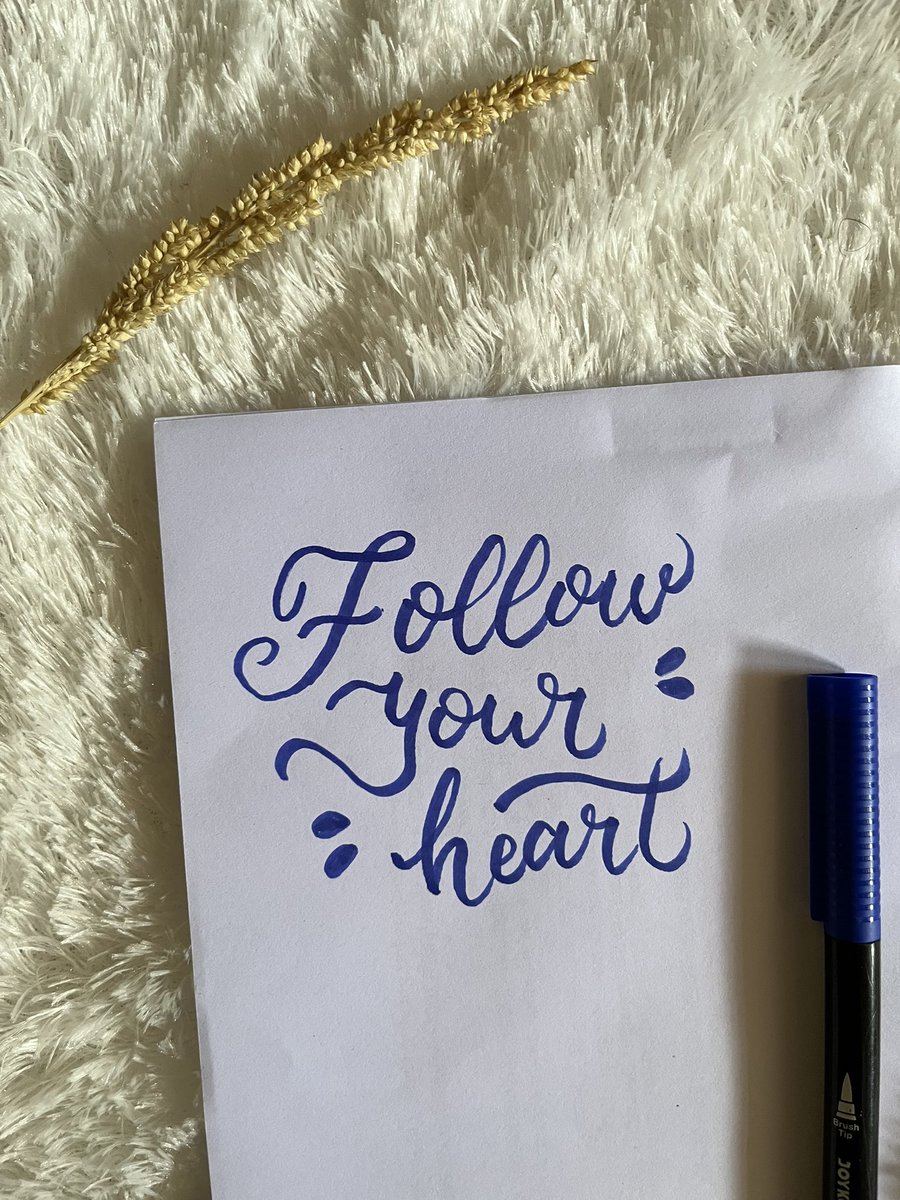 Follow
your
heart
Brush
Tip